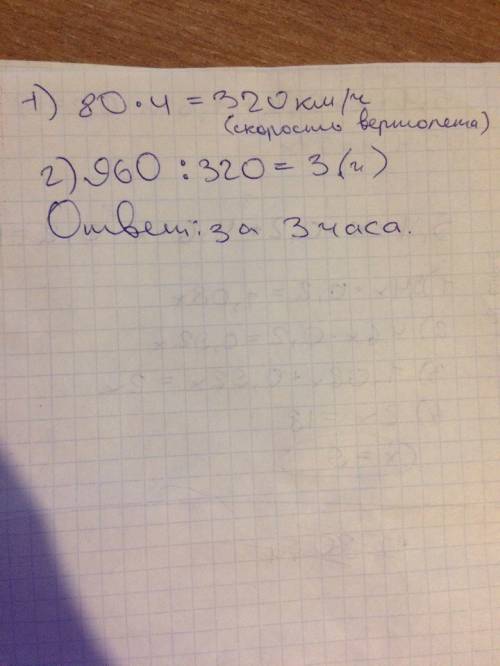 1) 80 · 4 = 320 км/ч
(скорость вертолета)
2) 960 : 320 = 3 (ч)
Ответ: за 3 часа.